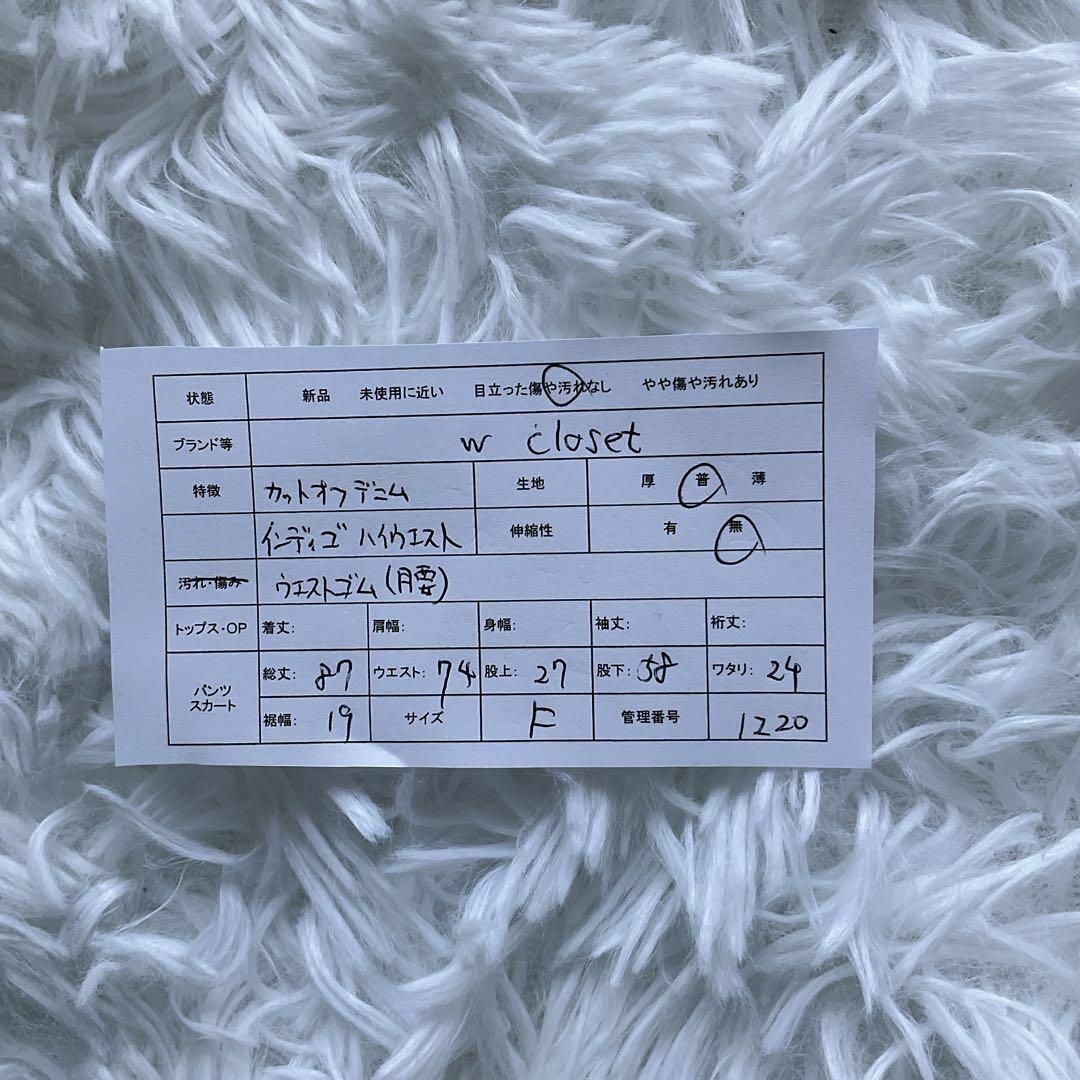 状態 新品 未使用に近い 目立った傷や汚れなし やや傷や汚れあり
ブランド等 w closet
特徴 カットオフデニム 生地 厚 普 薄
インディゴ ハイウエスト 伸縮性 有 無
汚れ・傷み ウエストゴム(腰)
トップス・OP 着丈: 肩幅: 身幅: 袖丈: 裄丈:
パンツ スカート 総丈: 87 ウエスト: 74 股上: 27 股下: 58 ワタリ: 24
裾幅: 19 サイズ F 管理番号 1220